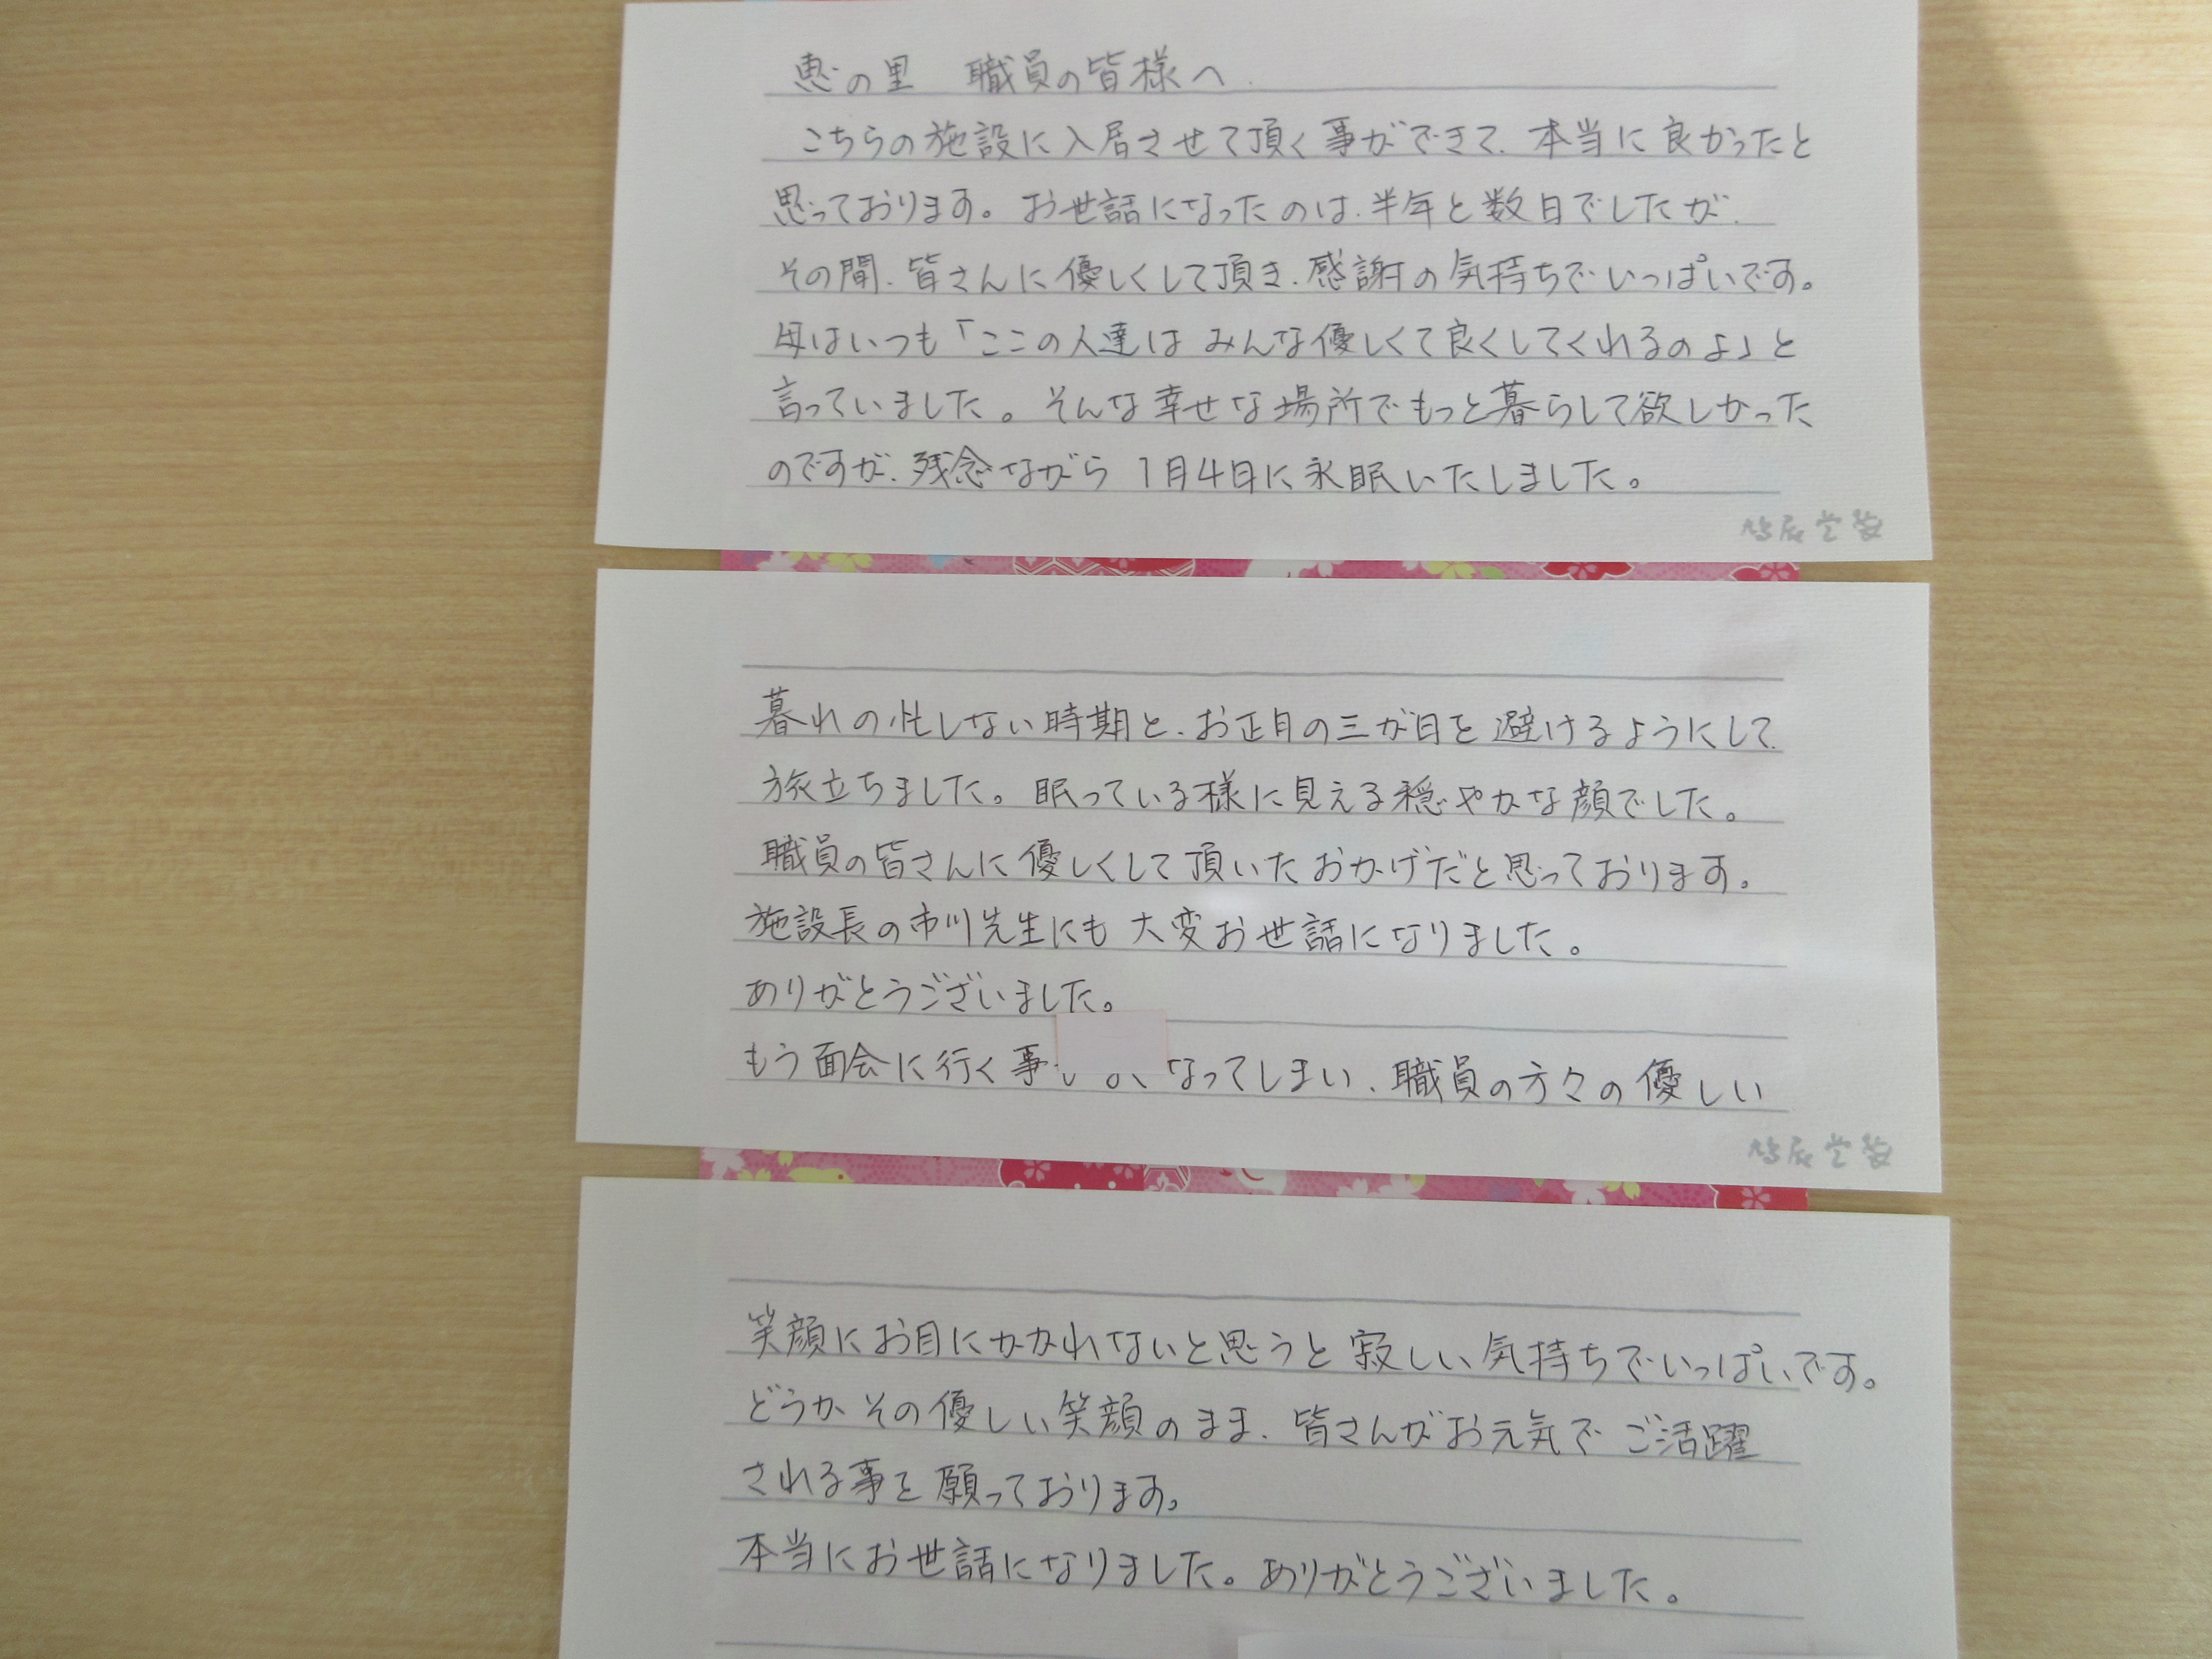 恵の里 職員の皆様へ
こちらの施設に入居させて頂く事ができて、本当に良かったと
思っております。お世話になったのは、半年と数日でしたが、
その間、皆さんに優しくして頂き、感謝の気持ちでいっぱいです。
母はいつも「ここの人達は みんな優しくて良くしてくれるのよ」と
言っていました。そんな幸せな場所でもっと暮らして欲しかった
のですが、残念ながら 1月4日に永眠いたしました。
鳩居堂製
暮れの忙しない時期と、お正月の三が日を 避けるようにして、
旅立ちました。眠っている様に見える穏やかな顔でした。
職員の皆さんに優しくして頂いたおかげだと思っております。
施設長の市川先生にも 大変お世話になりました。
ありがとうございました。
もう面会に行く事 なってしまい、職員の方々の優しい
鳩居堂製
笑顔にお目にかかれないと思うと 寂しい気持ちでいっぱいです。
どうか その優しい笑顔のまま、皆さんがお元気で ご活躍
される事を 願っております。
本当にお世話になりました。ありがとうございました。